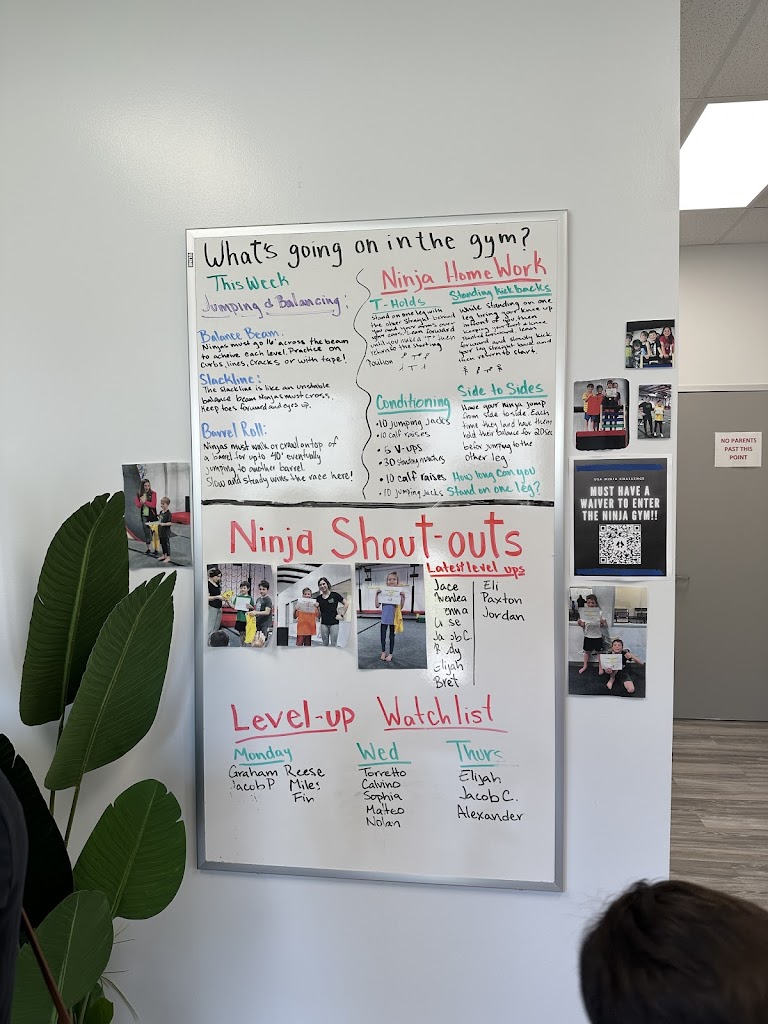 What's going on in the gym?
This Week
Jumping & Balancing:
Balance Beam:
Ninjas must go 16' across the beam
to achieve each level. Practice on
Curbs, lines, cracks or with tape!
Slackline:
The slackline is like an unstable
balance beam Ninjas must cross.
Keep toes forward and eyes up.
Barrel Roll:
Ninjas must walk or crawl on top of
a barrel for up to 40' eventually
jumping to another barrel.
Slow and steady wins the race here!
Ninja HomeWork
T-Holds
Stand on one leg with
the other straight behind
you and your arms over
your ears. Lean forward
until you make a "T" then
return to the starting
Position
Standing Kickbacks
While standing on one
leg bring your knee up
infront of you, then
keeping your foot & knee
forward, leave
forward and slowly kick
your leg straight back and
then return to start.
Conditioning
• 10 jumping Jacks
• 10 calf raises
• 5 V-ups
• 30
• 10 calf raises
• 10 jumping Jacks
Side to Sides
Have your ninja jump
from side to side. Each
time they land have them
hold their balance for 20sec
before jumping to the
other leg
How long can you
Stand on one leg?
Ninja Shout-outs
Latest level ups
Jace
Jacob C.
Elijah
Bret
Eli
Paxton
Jordan
Level-up Watchlist
Monday
Graham Reese
Jacob P Miles
Fin
Wed
Torretto
Calvino
Sophia
Mateo
Nolan
Thurs
Elijah
Jacob C.
Alexander
USA NINJA CHALLENGE
MUST HAVE A
WAIVER TO ENTER
THE NINJA GYM!!
NO PARENTS
PAST THIS
POINT